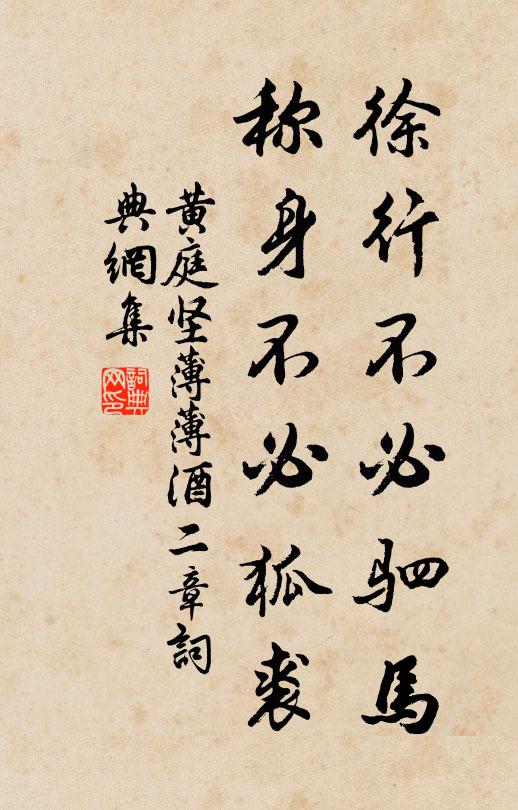 徐行不必驷馬
称身不必狐裘
黄庭坚薄薄酒二章詞
典網集
詞典网印